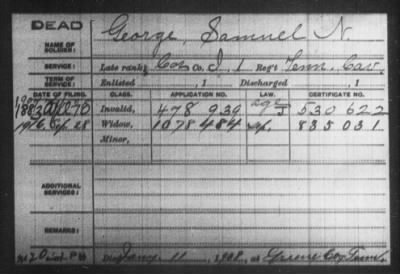 DEAD
George, Samuel N.
NAME OF SOLDIER:
SERVICE: Late rank, Cor Co. I, 1 Reg't Tenn. Cav.
TERM OF SERVICE: Enlisted , 1 Discharged , 1
DATE OF FILING. CLASS. APPLICATION NO. LAW. CERTIFICATE NO.
1883 Invalid, 478 939 530 622
1916, 28 Widow, 1078 484 835 031
Minor,
ADDITIONAL SERVICES:
REMARKS:
Died Jany 11, 1908, at Greene Co, Tenn.